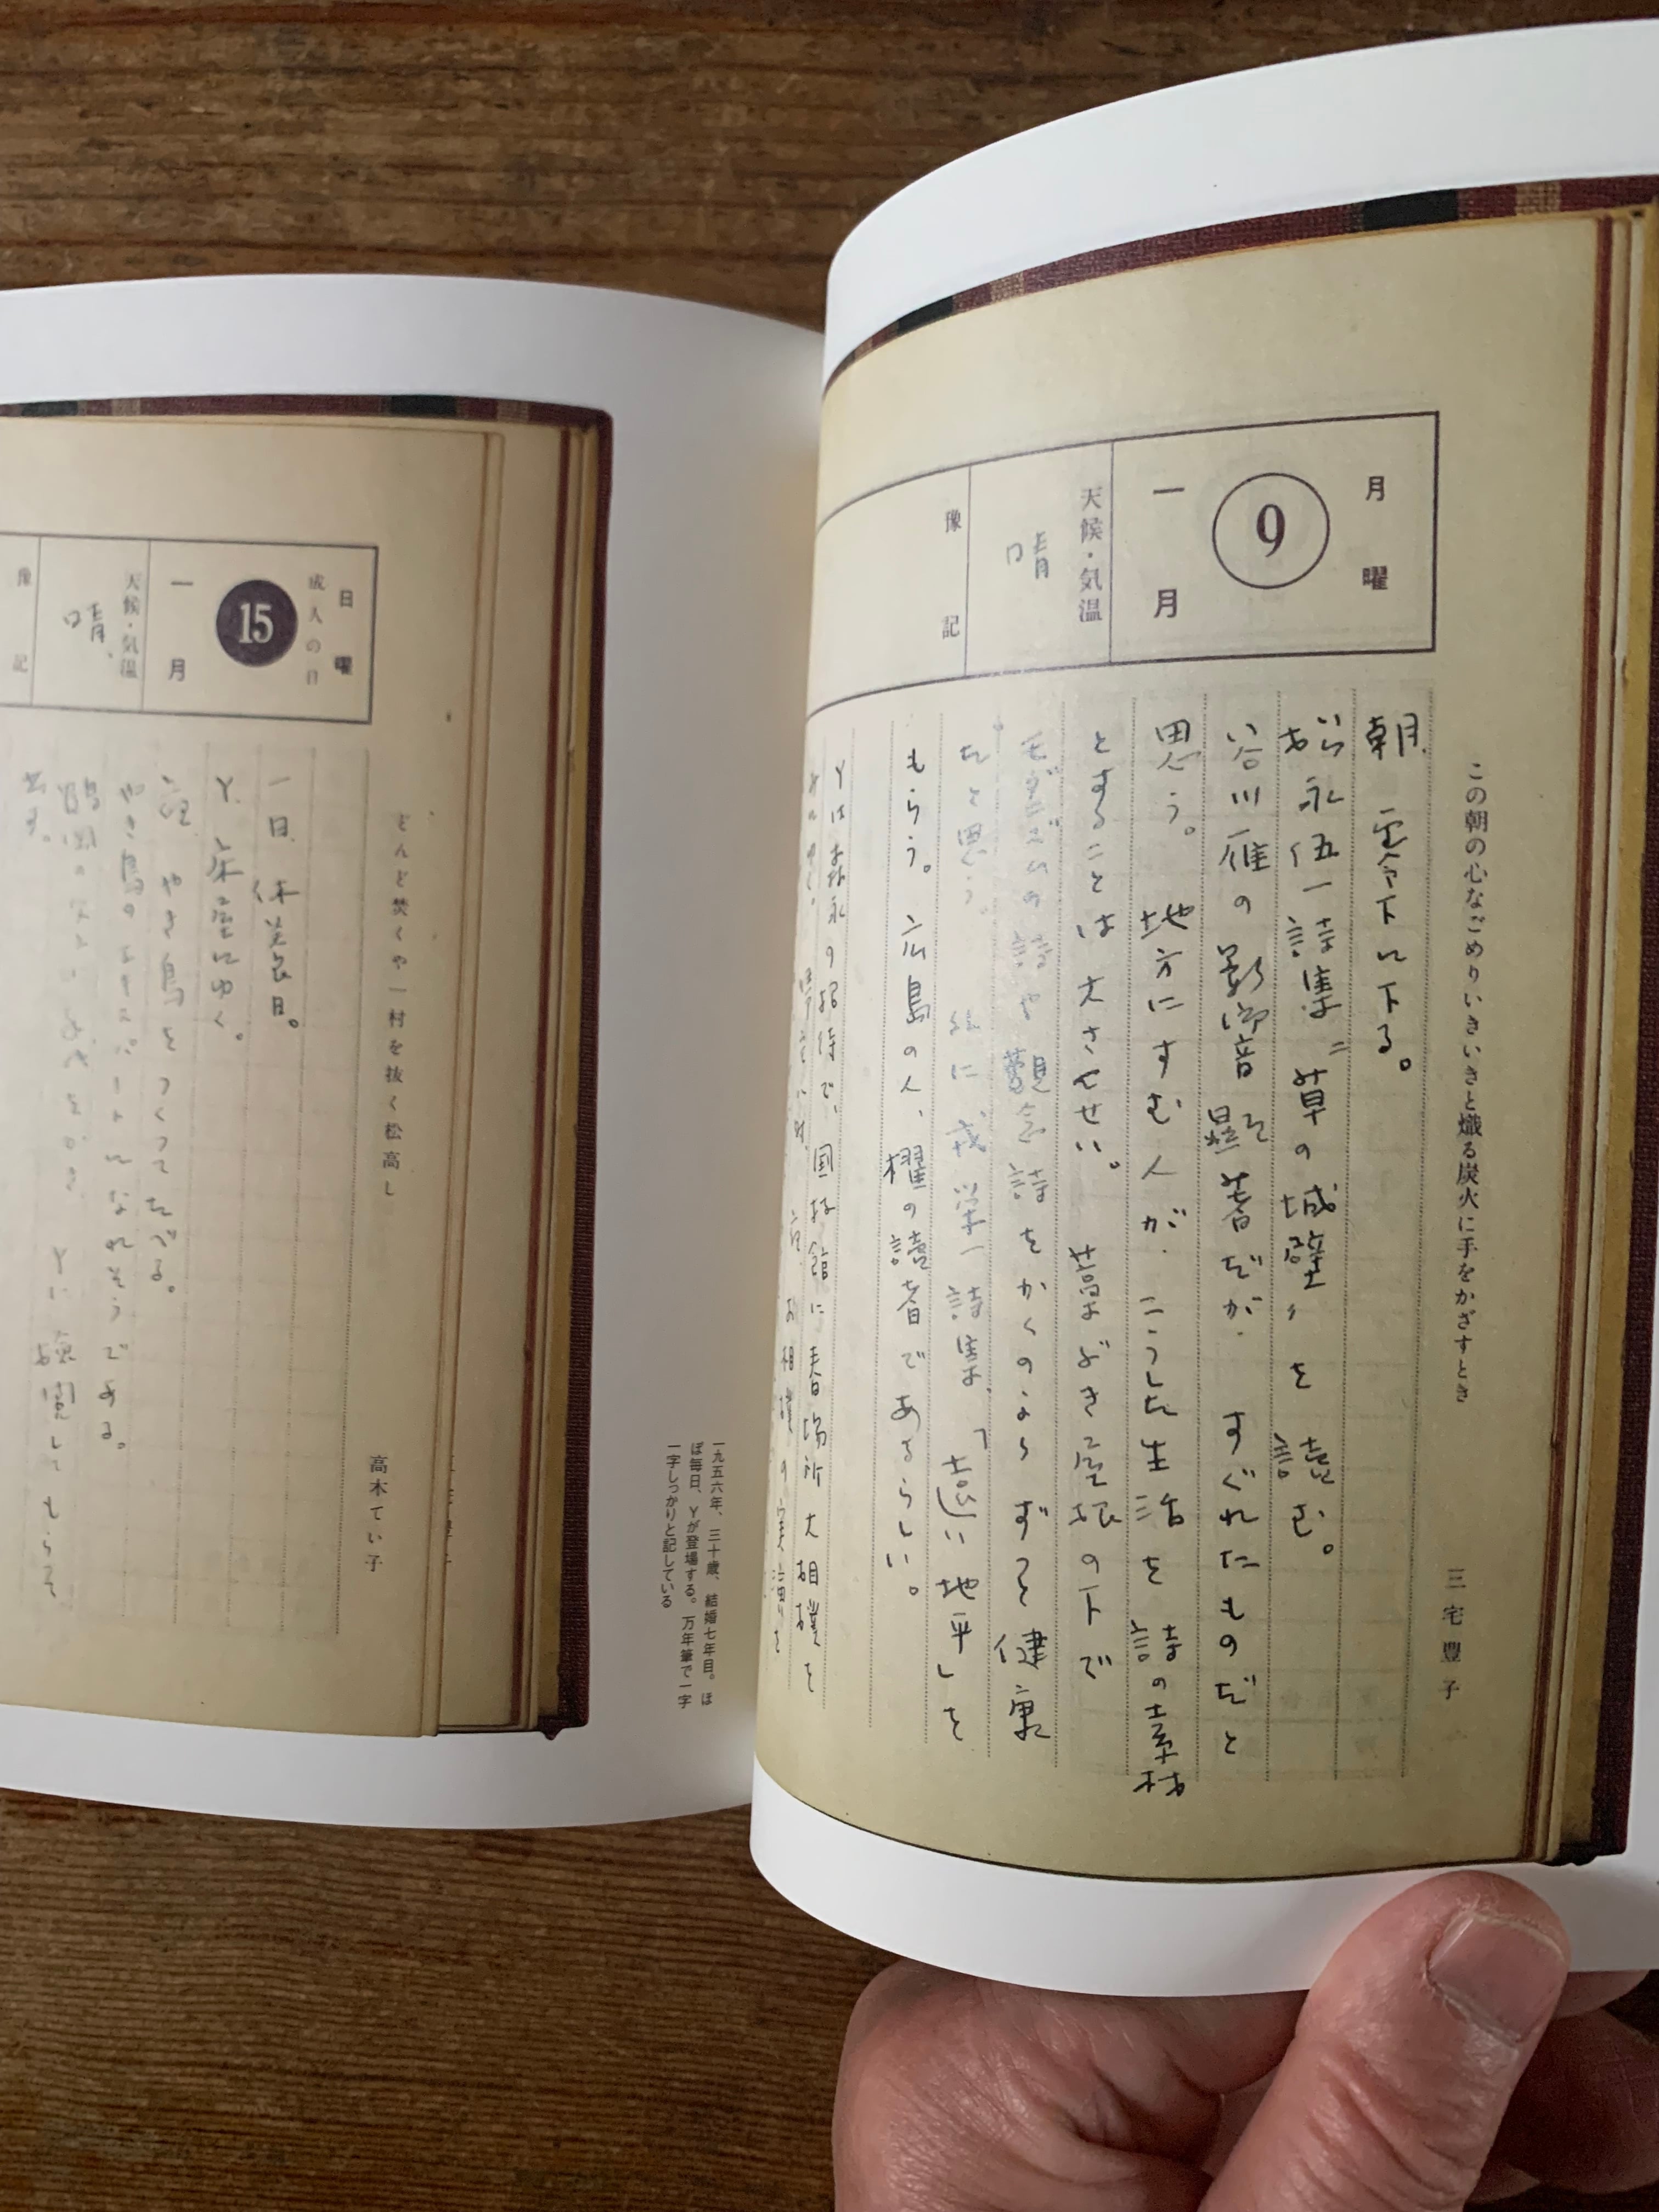 この朝の心なごめりいきいきと熾る炭火に手をかざすとき
三宅豊子
月曜
9
一月
天候・気温
晴
豫記
朝、零下に下る。
松永伍一詩集〝草の城壁〟を読む。
谷川雁の影響顕著だが、すぐれたものだと
思う。地方にすむ人が、こうした生活を詩の素材
とすることは大さんせい。藁ぶき屋根の下で
モダニズムの詩や観念詩をかくのよりずっと健康
だと思う。
に
栄一詩集、「遠い地平」を
もらう。広島の人、櫂の読者であるらしい。
Yは森永の招待で、国技館に春場所大相撲を
お相撲の実
一九五六年、三十歳、結婚七年目。ほ
ぼ毎日、Yが登場する。万年筆で一字
一字しっかりと記している
どんど焚くや一村を抜く松高し
高木てい子
日曜
成人の日
15
一月
天候・気温
晴、
豫記
一日、休養日。
Y、床屋にゆく。
夜、やき鳥をつくってたべる。
やき鳥のエキスパートになれそうである。
Yに
してもらって
出す。